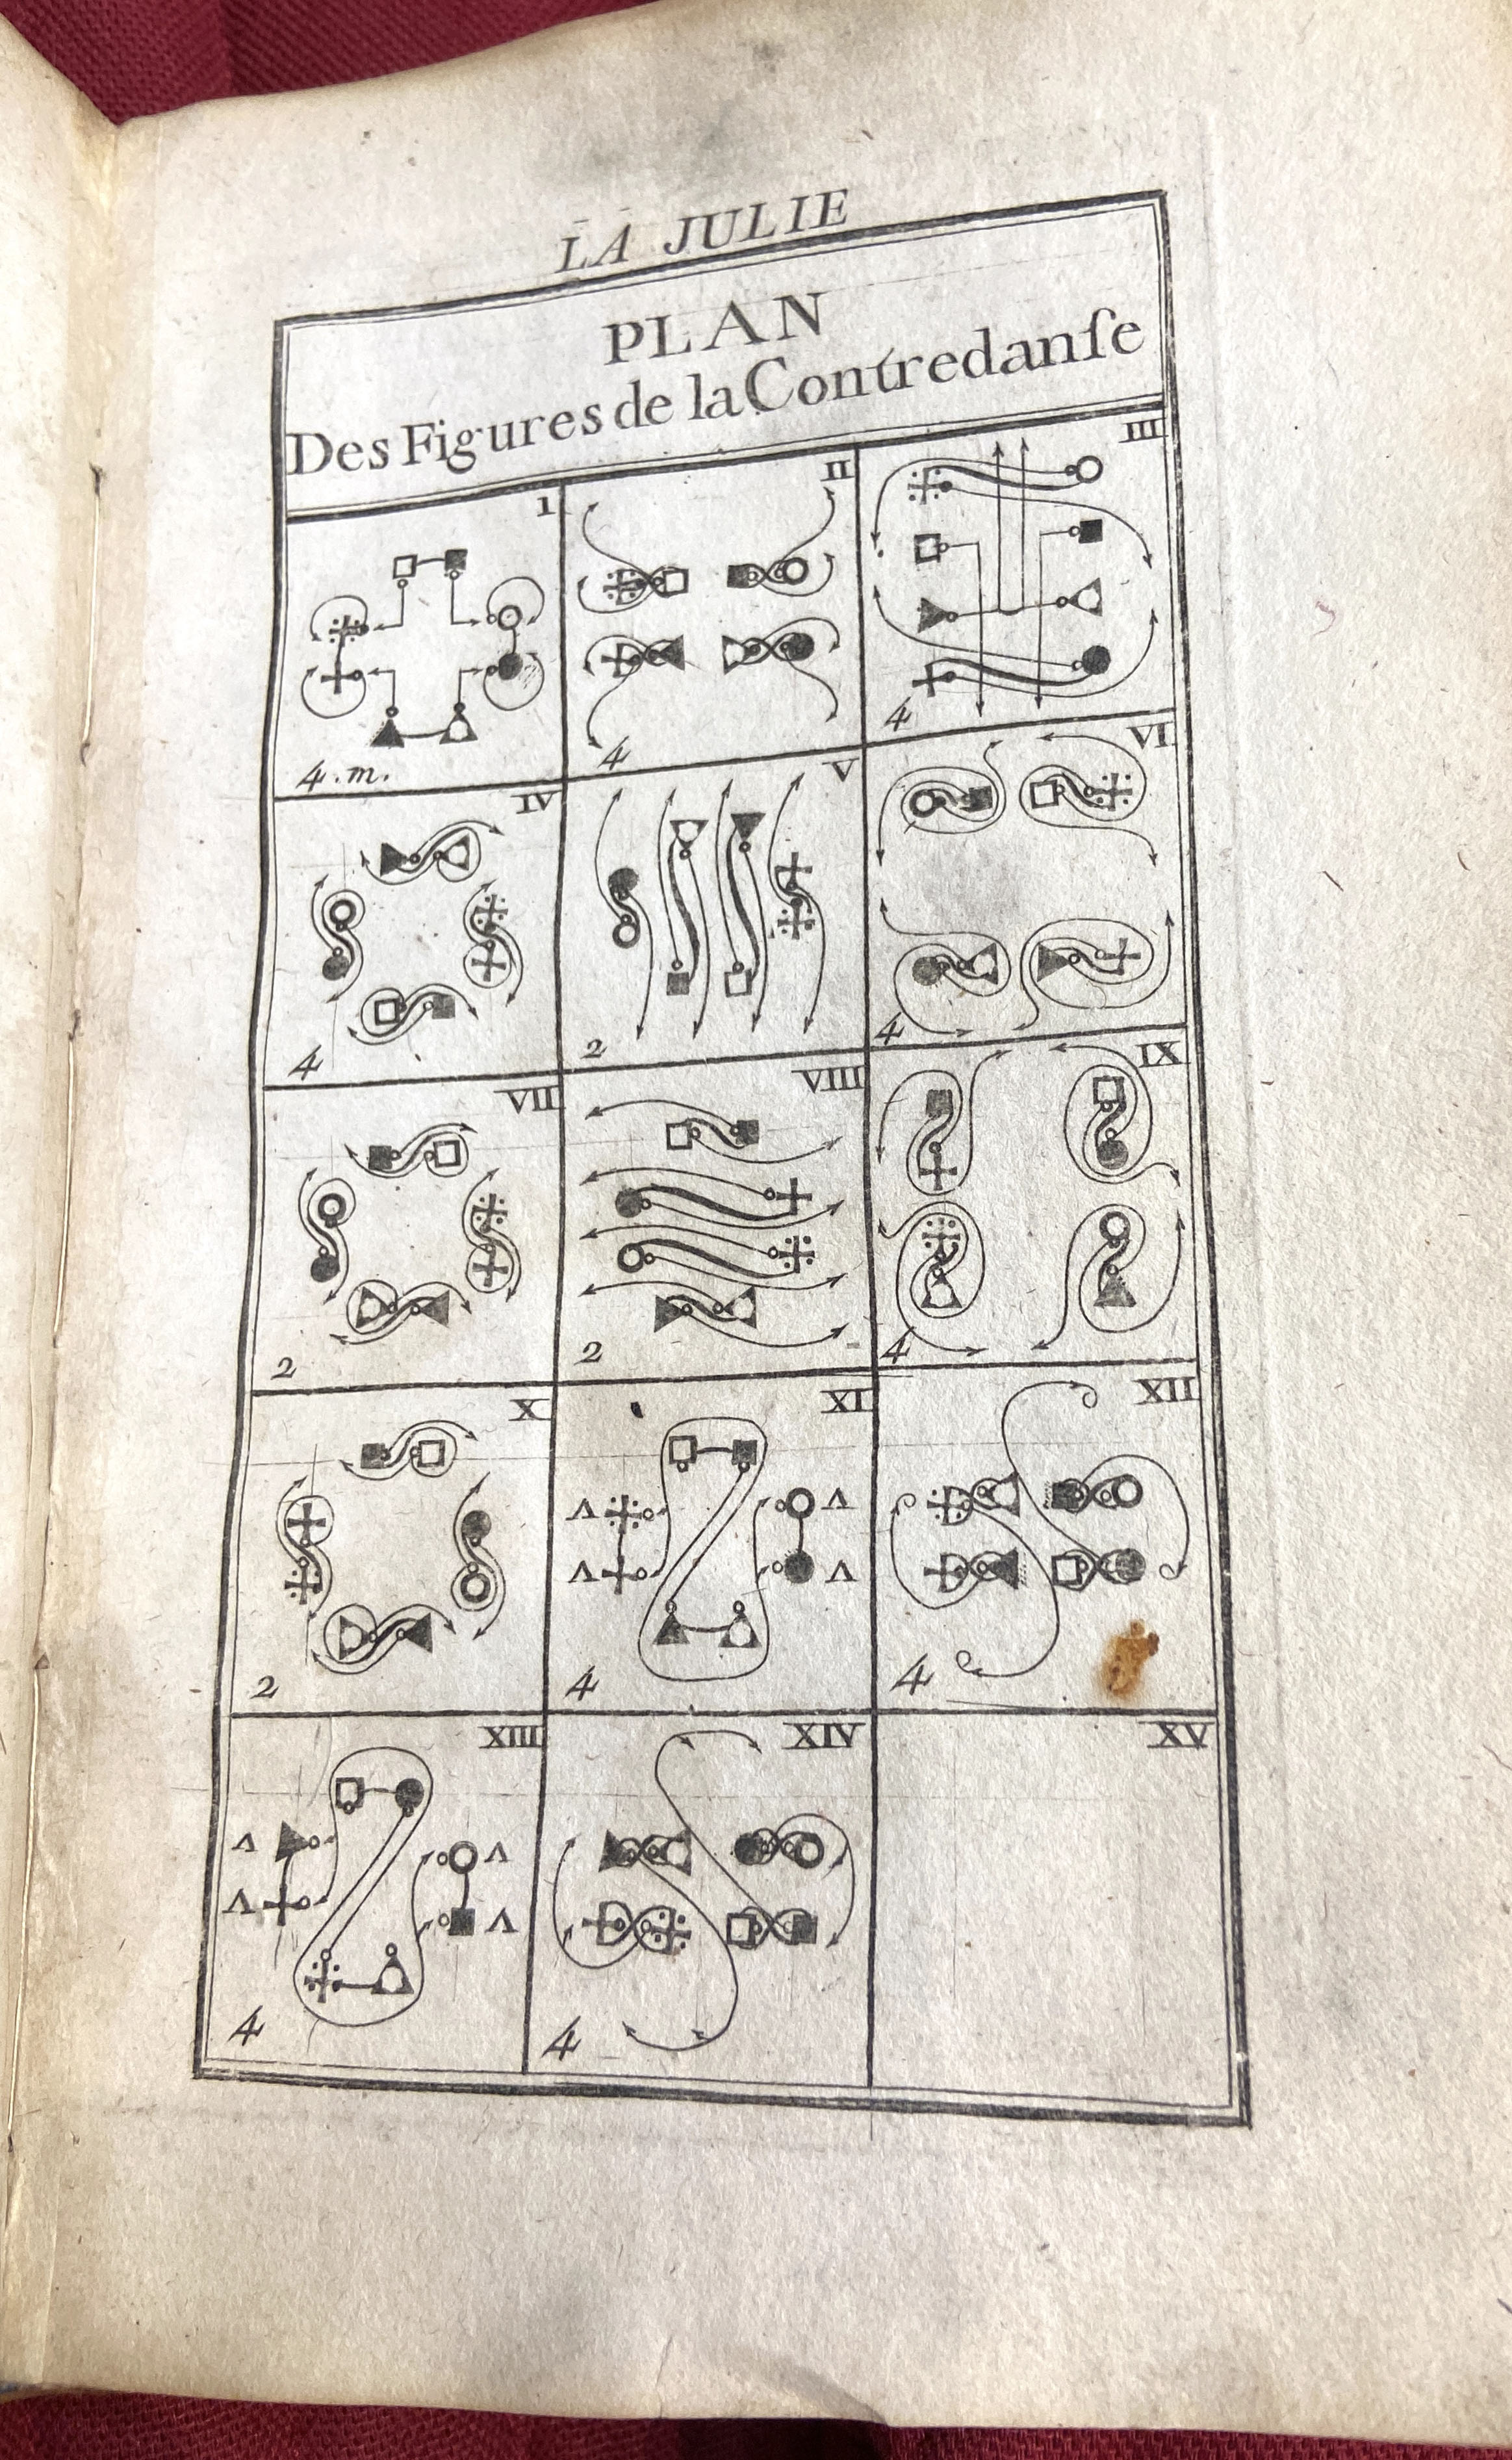 LA JULIE
PLAN
Des Figures de la Contredanſe
I
4.m.
II
4
III
4
IV
4
V
2
VI
4
VII
2
VIII
2
IX
4
X
2
XI
4
XII
4
XIII
4
XIV
4
XV